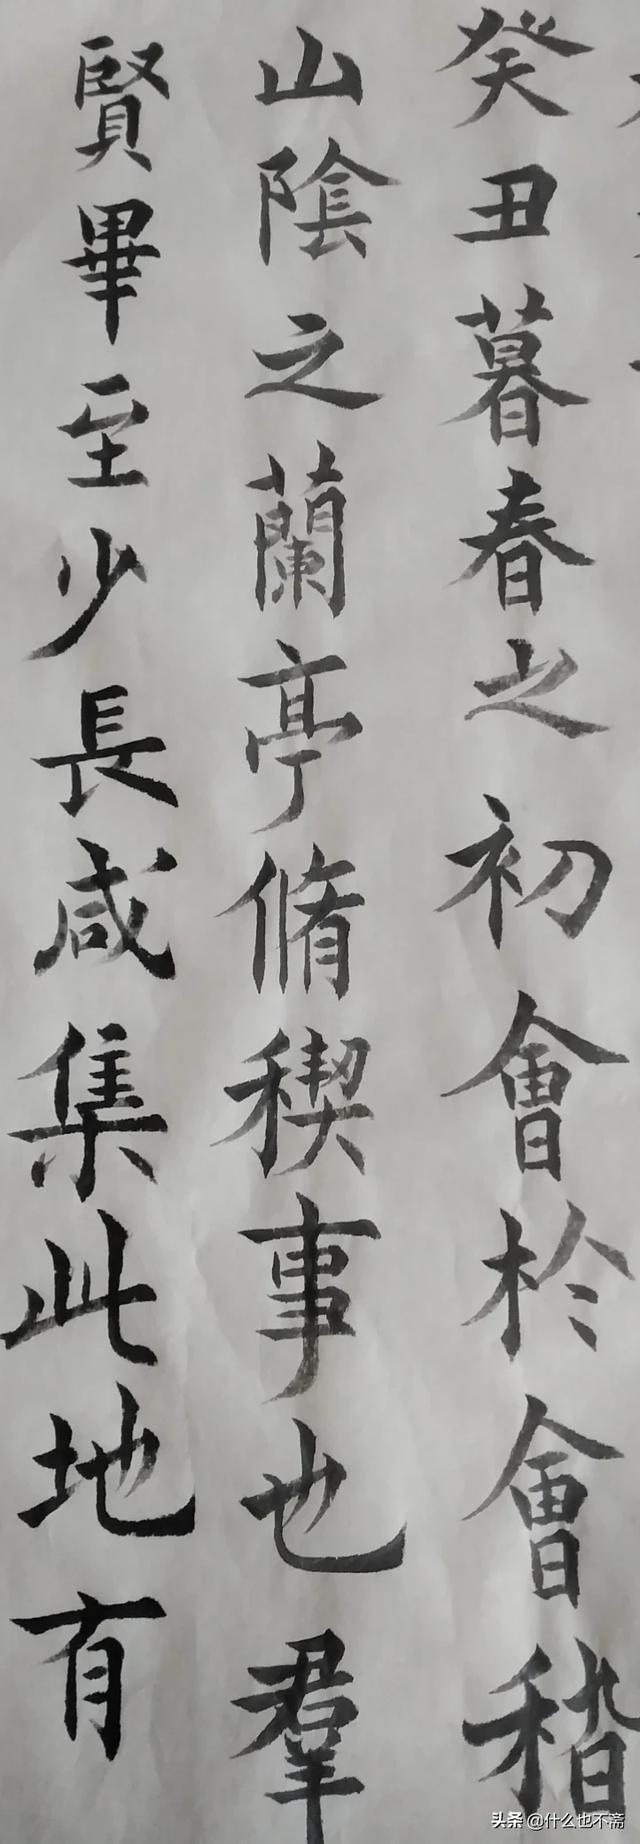 癸丑暮春之初會於會稽
山陰之蘭亭脩稧事也羣
賢畢至少長咸集此地有
头条 @什么也不斋